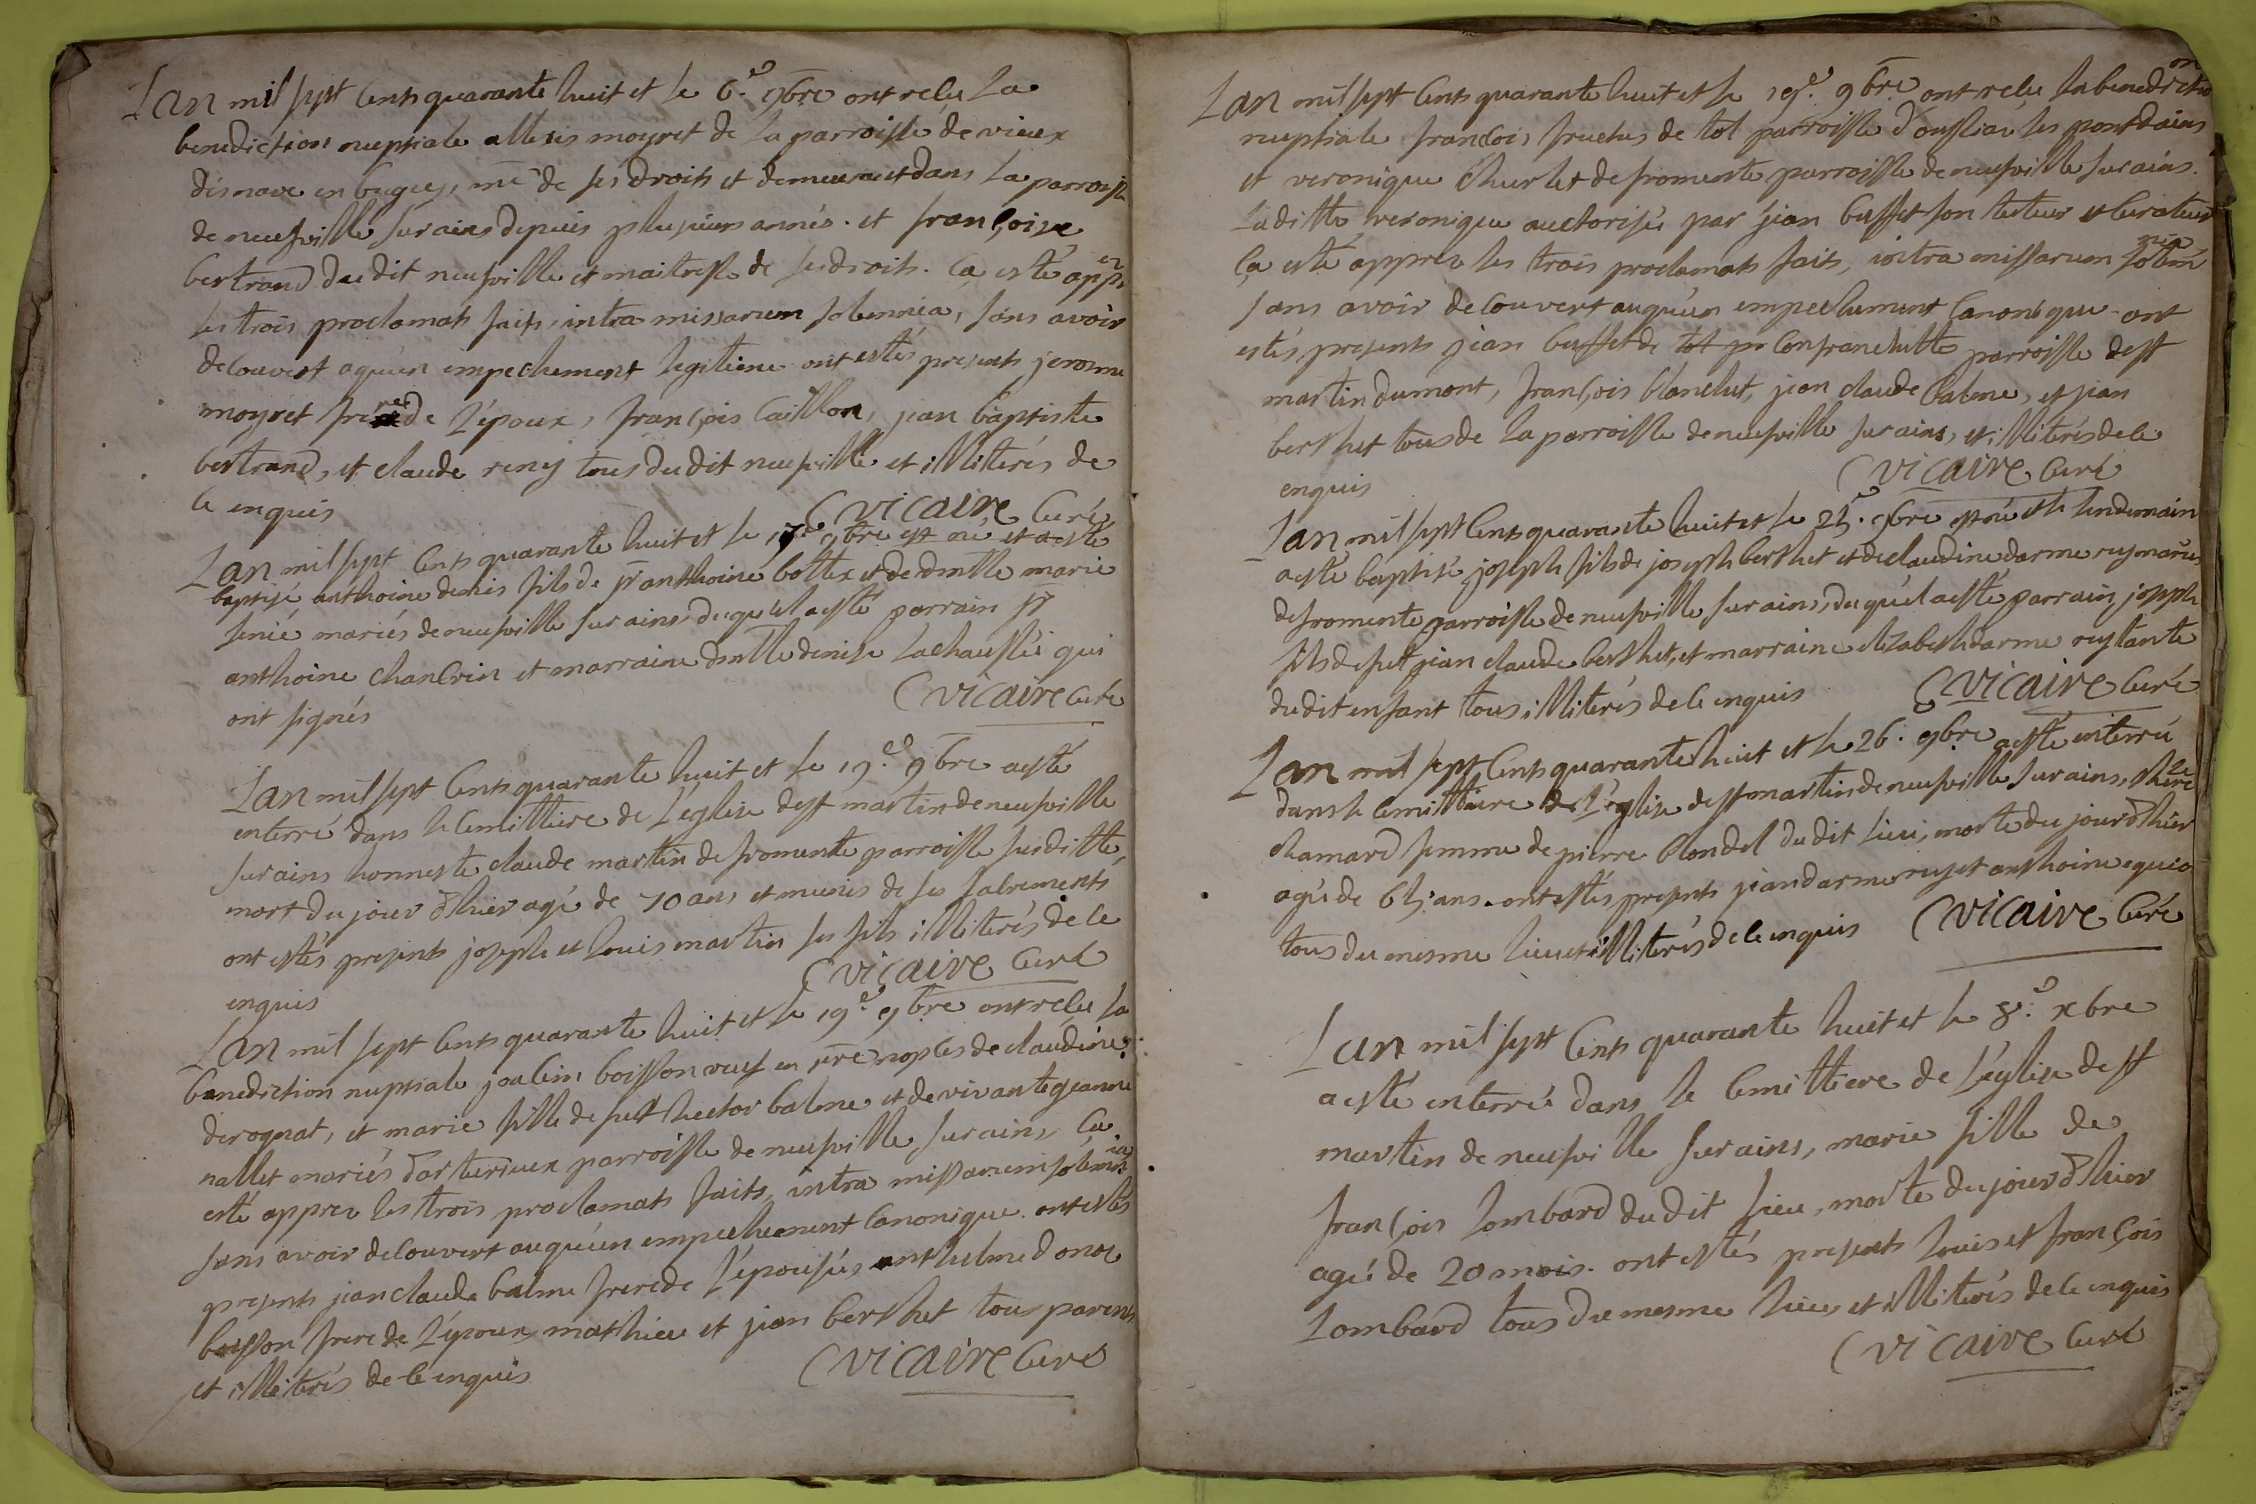 Lan mil sept Cents quarante huit et le 6.e 9bre ont reçu La
benediction nuptiale allexis moyret de la parroisse de vieux
disnave en bugey, me de ses droits et demeurant dans La parroisse
de neufville sur ains depuis plusieurs annés. et françoise
bertrand du dit neufville et maitresse de ses droits. Ca esté appres
les trois proclamats faits, intra missarum solemnia, sans avoir
decouvert aquun empechement legitime ont estés presents jerosme
moyret frere de L'époux, françois Caillon, jean baptiste
bertrand, et claude reney tous du dit neufville et illiterés de
ce enquis
Cvicaire Curé
Lan mil sept Cents quarante huit et le 17.e 9bre est né et a esté
baptisé anthoine denis fils de sr anthoine bottex et de dmlle marie
senié mariés de neufville sur ains duquel a esté parrain sr
anthoine Chancrin et marraine dmlle denise Lachaussée qui
ont signés
Cvicaire Curé
Lan mil sept Cents quarante huit et le 19.e 9bre a esté
enterré dans le Cemittiere de L'église de st martin de neufville
sur ains honneste claude martin de fromente parroisse susditte,
mort du jour d'hier agé de 70 ans et munis de ses sacrements
ont estés presents joseph et Louis martin ses fils illiterés de ce
enquis
Cvicaire Curé
Lan mil sept Cents quarante huit et le 19.e 9bre ont reçu la
benediction nuptiale joachim boisson veuf en pre nopces de claudine
derognat, et marie fille de fut hector balme et de vivante jeanne
nallet mariés d'arturieux parroisse de neufville sur ains Ca
esté appres les trois proclamats faits, intra missarum solemnia
sans avoir decouvert auquun empechement Canonique. ont estés
presents jean claude balme frere de L'épousée, anthelme donat
boisson frere de L'époux mathieu et jean berthet tous parents
et illiterés de ce enquis
Cvicaire Curé
Lan mil sept Cents quarante huit et le 19.e 9bre ont reçu la benediction
nuptiale françois fruchus de tol parroisse d'oussiat les pont dains
et veronique Churlet de fromente parroisse de neufville sur ains.
La ditte veronique auctorisée par jean buffet son tuteur et Curateur
Ca esté appres les trois proclamats faits, intra missarum solemnia
sans avoir decouvert auquun empechement Canonique ont
estés presents jean buffet de Confranchette parroisse de st
martin dumont, françois blanchet, jean claude balme, et jean
berthet tous de la parroisse de neufville sur ains, et illiterés de ce
enquis
Cvicaire Curé
Lan mil sept Cents quarante huit et le 25. 9bre est né et le Lendemain
a esté baptisé joseph fils de joseph berthet et de claudine darmerey mariés
de fromente parroisse de neufville sur ains, duquel a esté parrain joseph
fils de fut jean claude berthet, et marraine elizabeth darmerey tante
du dit enfant tous illiterés de ce enquis
Cvicaire Curé
Lan mil sept Cents quarante huit et le 26. 9bre a esté enterré
dans le Cemittiere de L'église de st martin de neufville sur ains,
chamard femme de pierre blondel du dit Lieu, morte du jour d'hier
agée de 65 ans. ont estés presents jean darmerey et anthoine
tous du mesme lieu et illiterés de ce enquis
Cvicaire Curé
Lan mil sept Cents quarante huit et le 8.e xbre
a esté enterrée dans le Cemittiere de L'église de st
martin de neufville sur ains, marie fille de
françois Lombard du dit Lieu, morte du jour d'hier
agée de 20 mois. ont estés presents Louis et françois
Lombard tous du mesme Lieu et illiterés de ce enquis
Cvicaire Curé